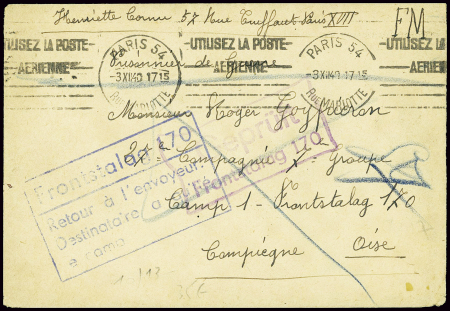 Henriette Cornu 57 Rue Truffaut Paris XVII
FM
UTILISEZ LA POSTE
AERIENNE
PARIS 54
-3 XII 40 17 15
RUE MARLOTTE
UTILISEZ LA POSTE
AERIENNE
PARIS 54
-3 XII 40 17 15
RUE MARLOTTE
Prisonnier de Guerre
Monsieur Roger
Compagnie X Groupe
Camp 1 - Frontstalag 170
Compiègne Oise
Frontstalag 170
Retour à l'envoyeur
Destinataire a
Geprüft
Frontstalag 170